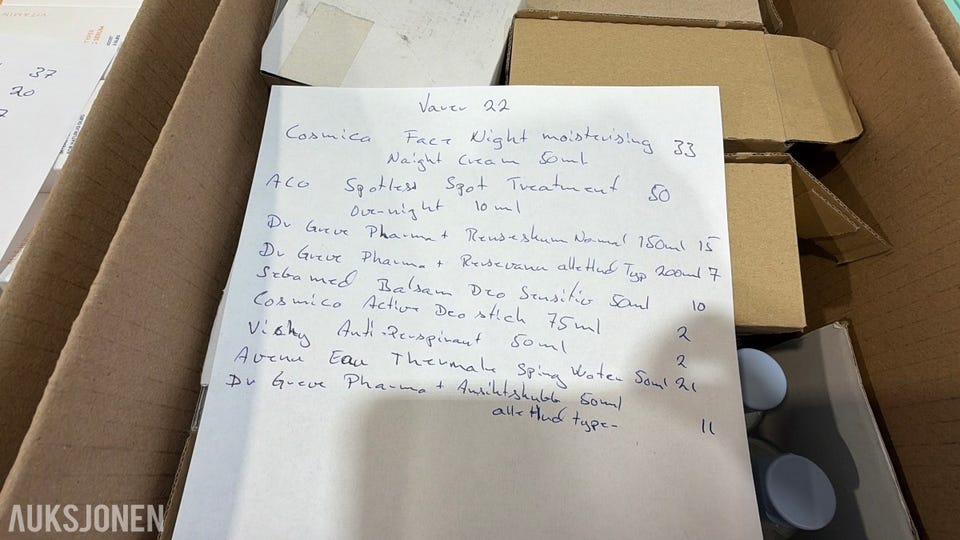 VITAMIN
37
20
7
Varer 22
Cosmica Face Night moisterising 33
Naight Cream 50ml
ACO Spotless Spot Treatment 50
Overnight 10ml
Dr Greve Pharma + Renseskum Normal 150ml 15
Dr Greve Pharma + Rensevann alle Hud Typ 200ml 7
Sebamed Balsam Deo Sensitiv 50ml 10
Cosmica Active Deo stick 75ml 2
Vichy Anti-Perspirant 50ml 2
Avene Eau Thermale Sping Water 50ml 21
Dr Greve Pharma + Ansiktskubb 50ml
alle Hud type- 11
AUKSJONEN